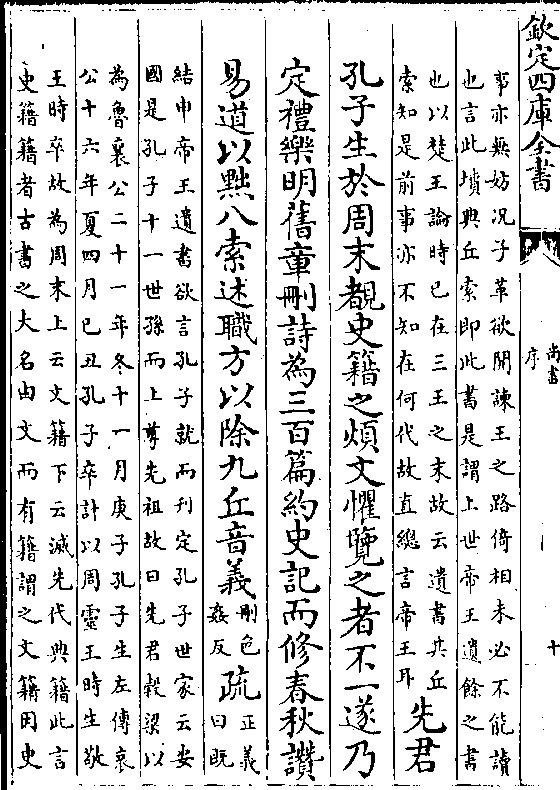 欽定四庫全書
尚書序
十
事亦無妨况子革欲開諫王之路倚相未必不能讀
也言此墳典丘索即此書是謂上世帝王遺餘之書
也以楚王論時已在三王之末故云遺書其丘
索知是前事亦不知在何代故直總言帝王耳
先君
孔子生於周末覩史籍之煩文懼覽之者不一遂乃
定禮樂明舊章刪詩為三百篇約史記而修春秋讚
易道以黜八索述職方以除九丘音義
刪色
姦反
疏
正義
曰既
結申帝王遺書欲言孔子就而刊定孔子世家云安
國是孔子十一世孫而上尊先祖故曰先君穀梁以
為魯襄公二十一年冬十一月庚子孔子生左傳哀
公十六年夏四月己丑孔子卒計以周靈王時生敬
王時卒故為周末上云文籍下云滅先代典籍此言
史籍籍者古書之大名由文而有籍謂之文籍因史